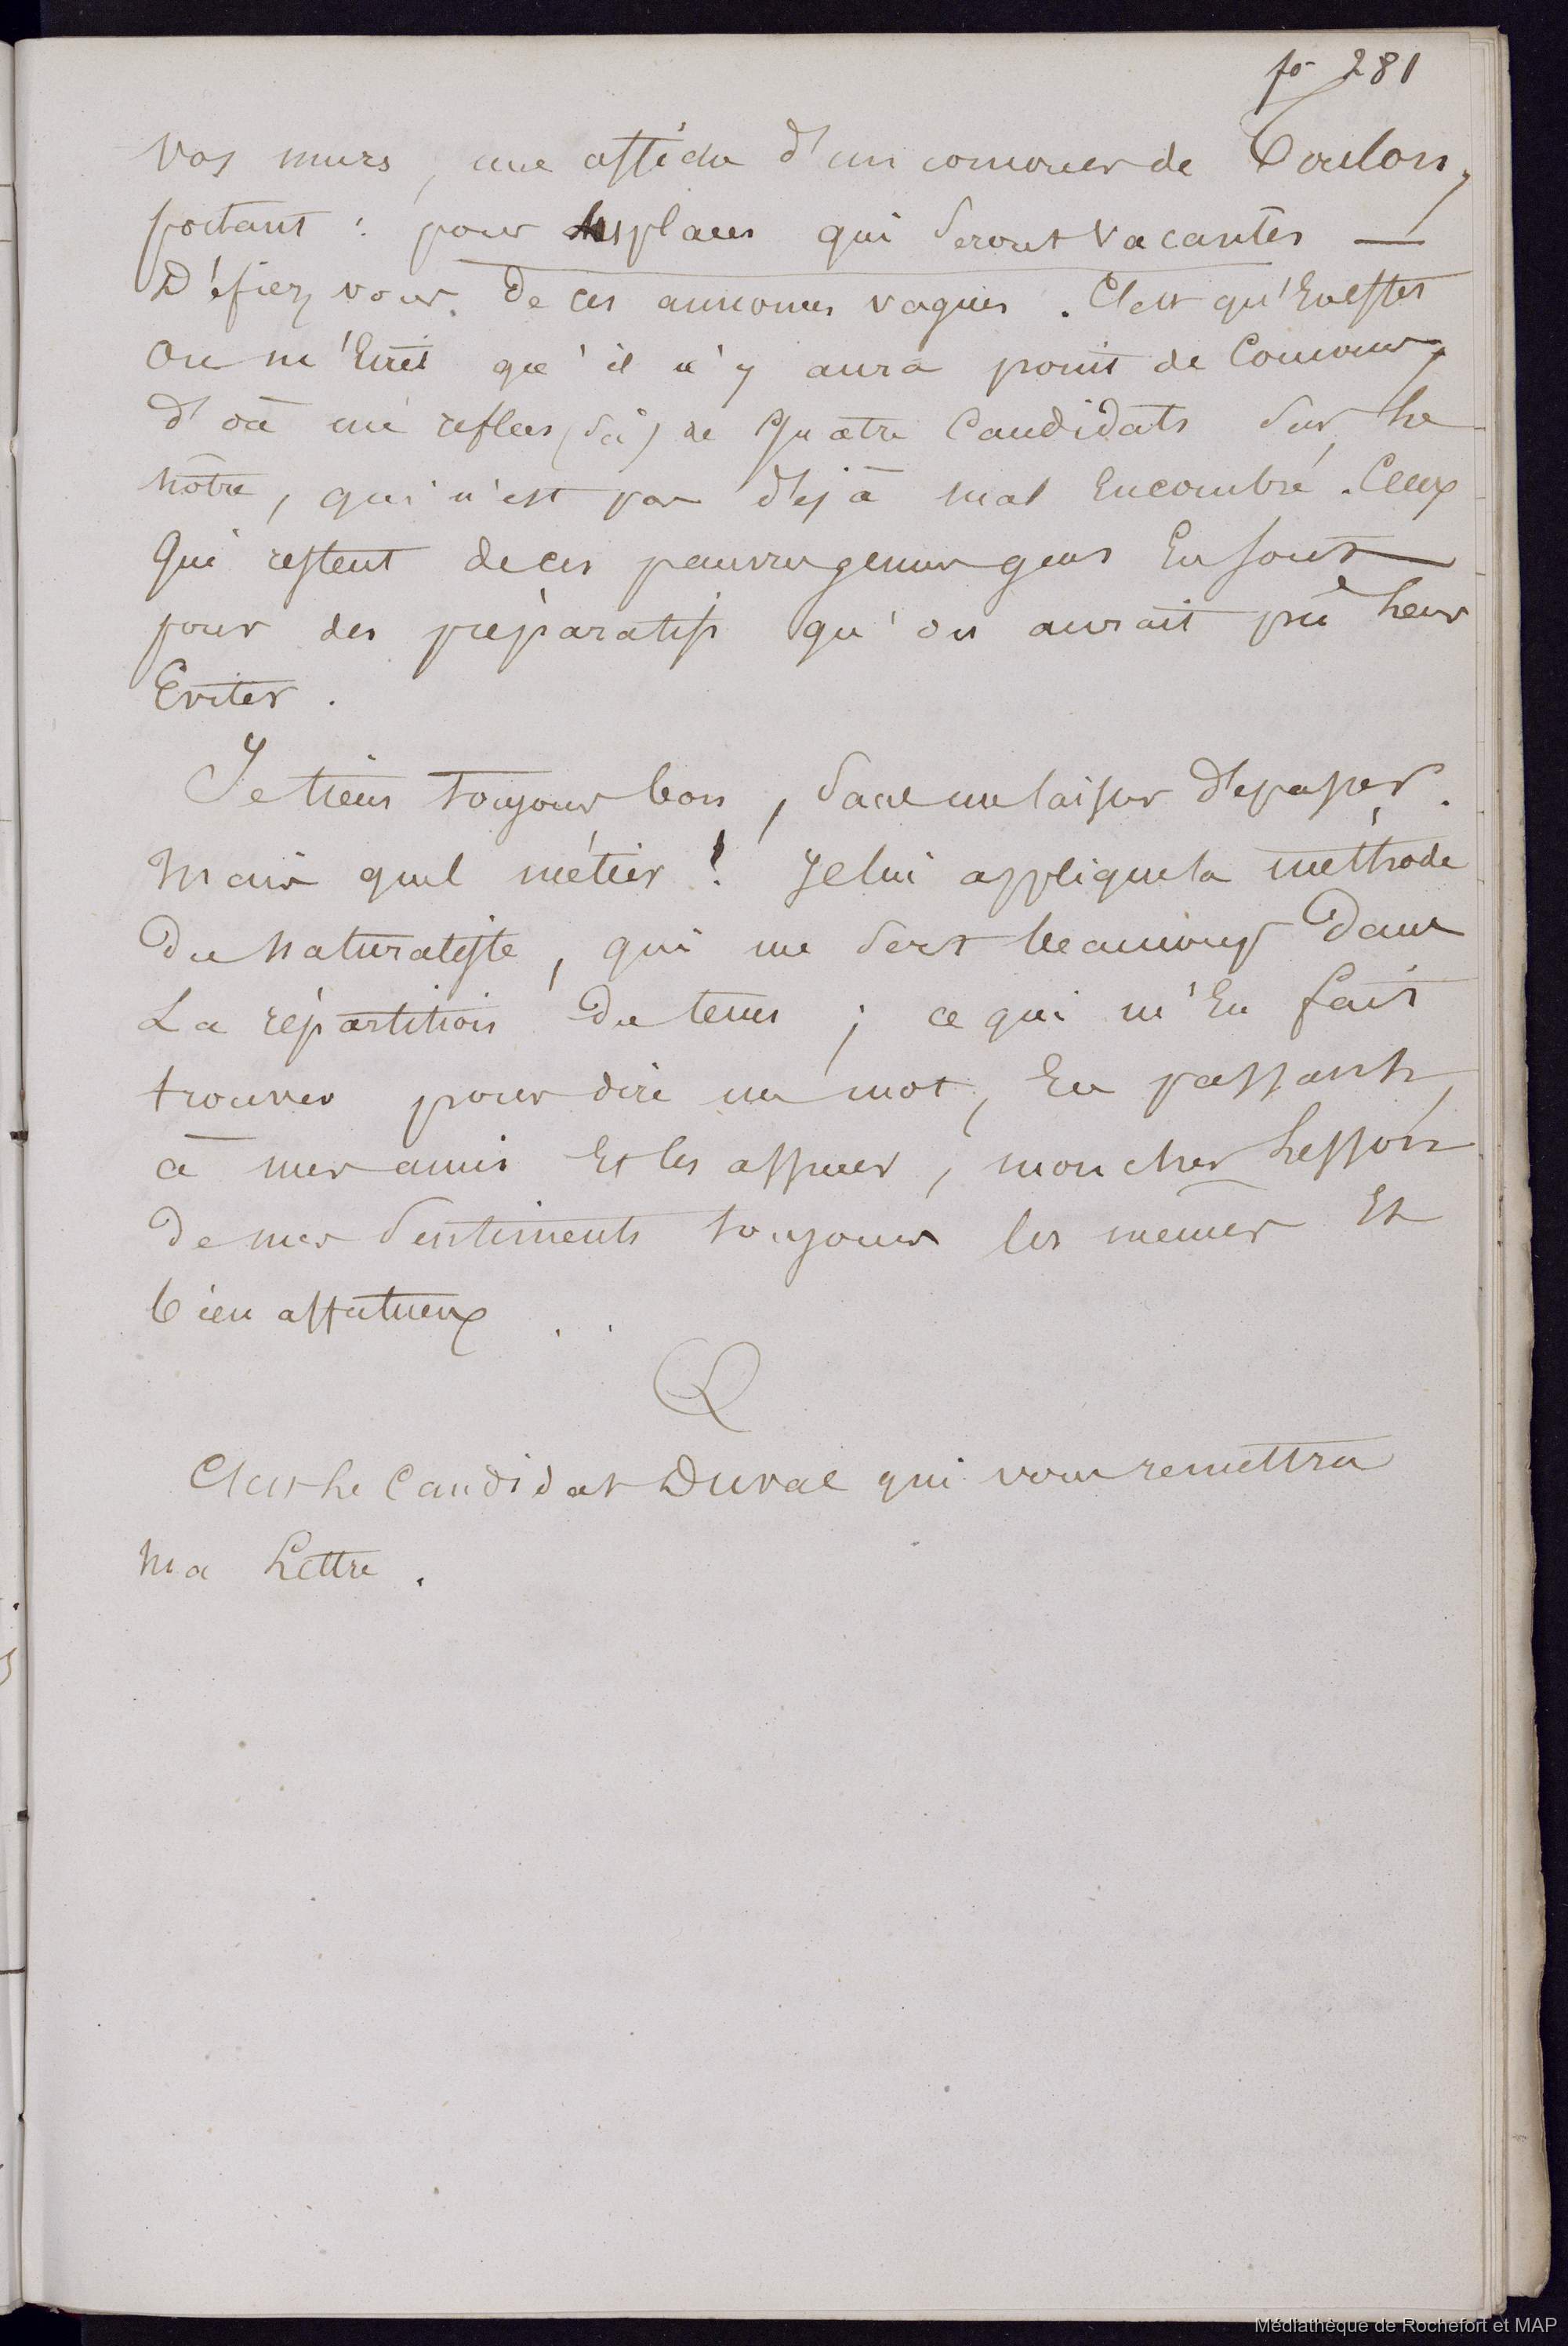 fo 281
Vos murs, une affiche d'un concours de Toulon,
portant : pour les places qui seront vacantes —
Défiez vous de ces annonces vagues. C'est qu'en effet
on m'écrit qu'il n'y aura point de Concours,
d'où un reflux de quatre Candidats sur le
nôtre, qui n'est pas déjà mal encombré. Ceux
qui restent de ces pauvres jeunes gens en sont
pour des préparatifs qu'on aurait pû leur
Eviter.
Je tiens toujours bon, sans me laisser dépasser.
Mais quel métier ! Je lui applique la méthode
du naturaliste, qui me sert beaucoup dans
La répartition du tems ; ce qui m'en fait
trouver pour dire un mot, en passant,
à mes amis et les assurer, mon cher Lesson
de mes sentiments toujours les mêmes et
bien affectueux
Q
C'est le Candidat Duval qui vous remettra
Ma Lettre.
Médiathèque de Rochefort et MAP